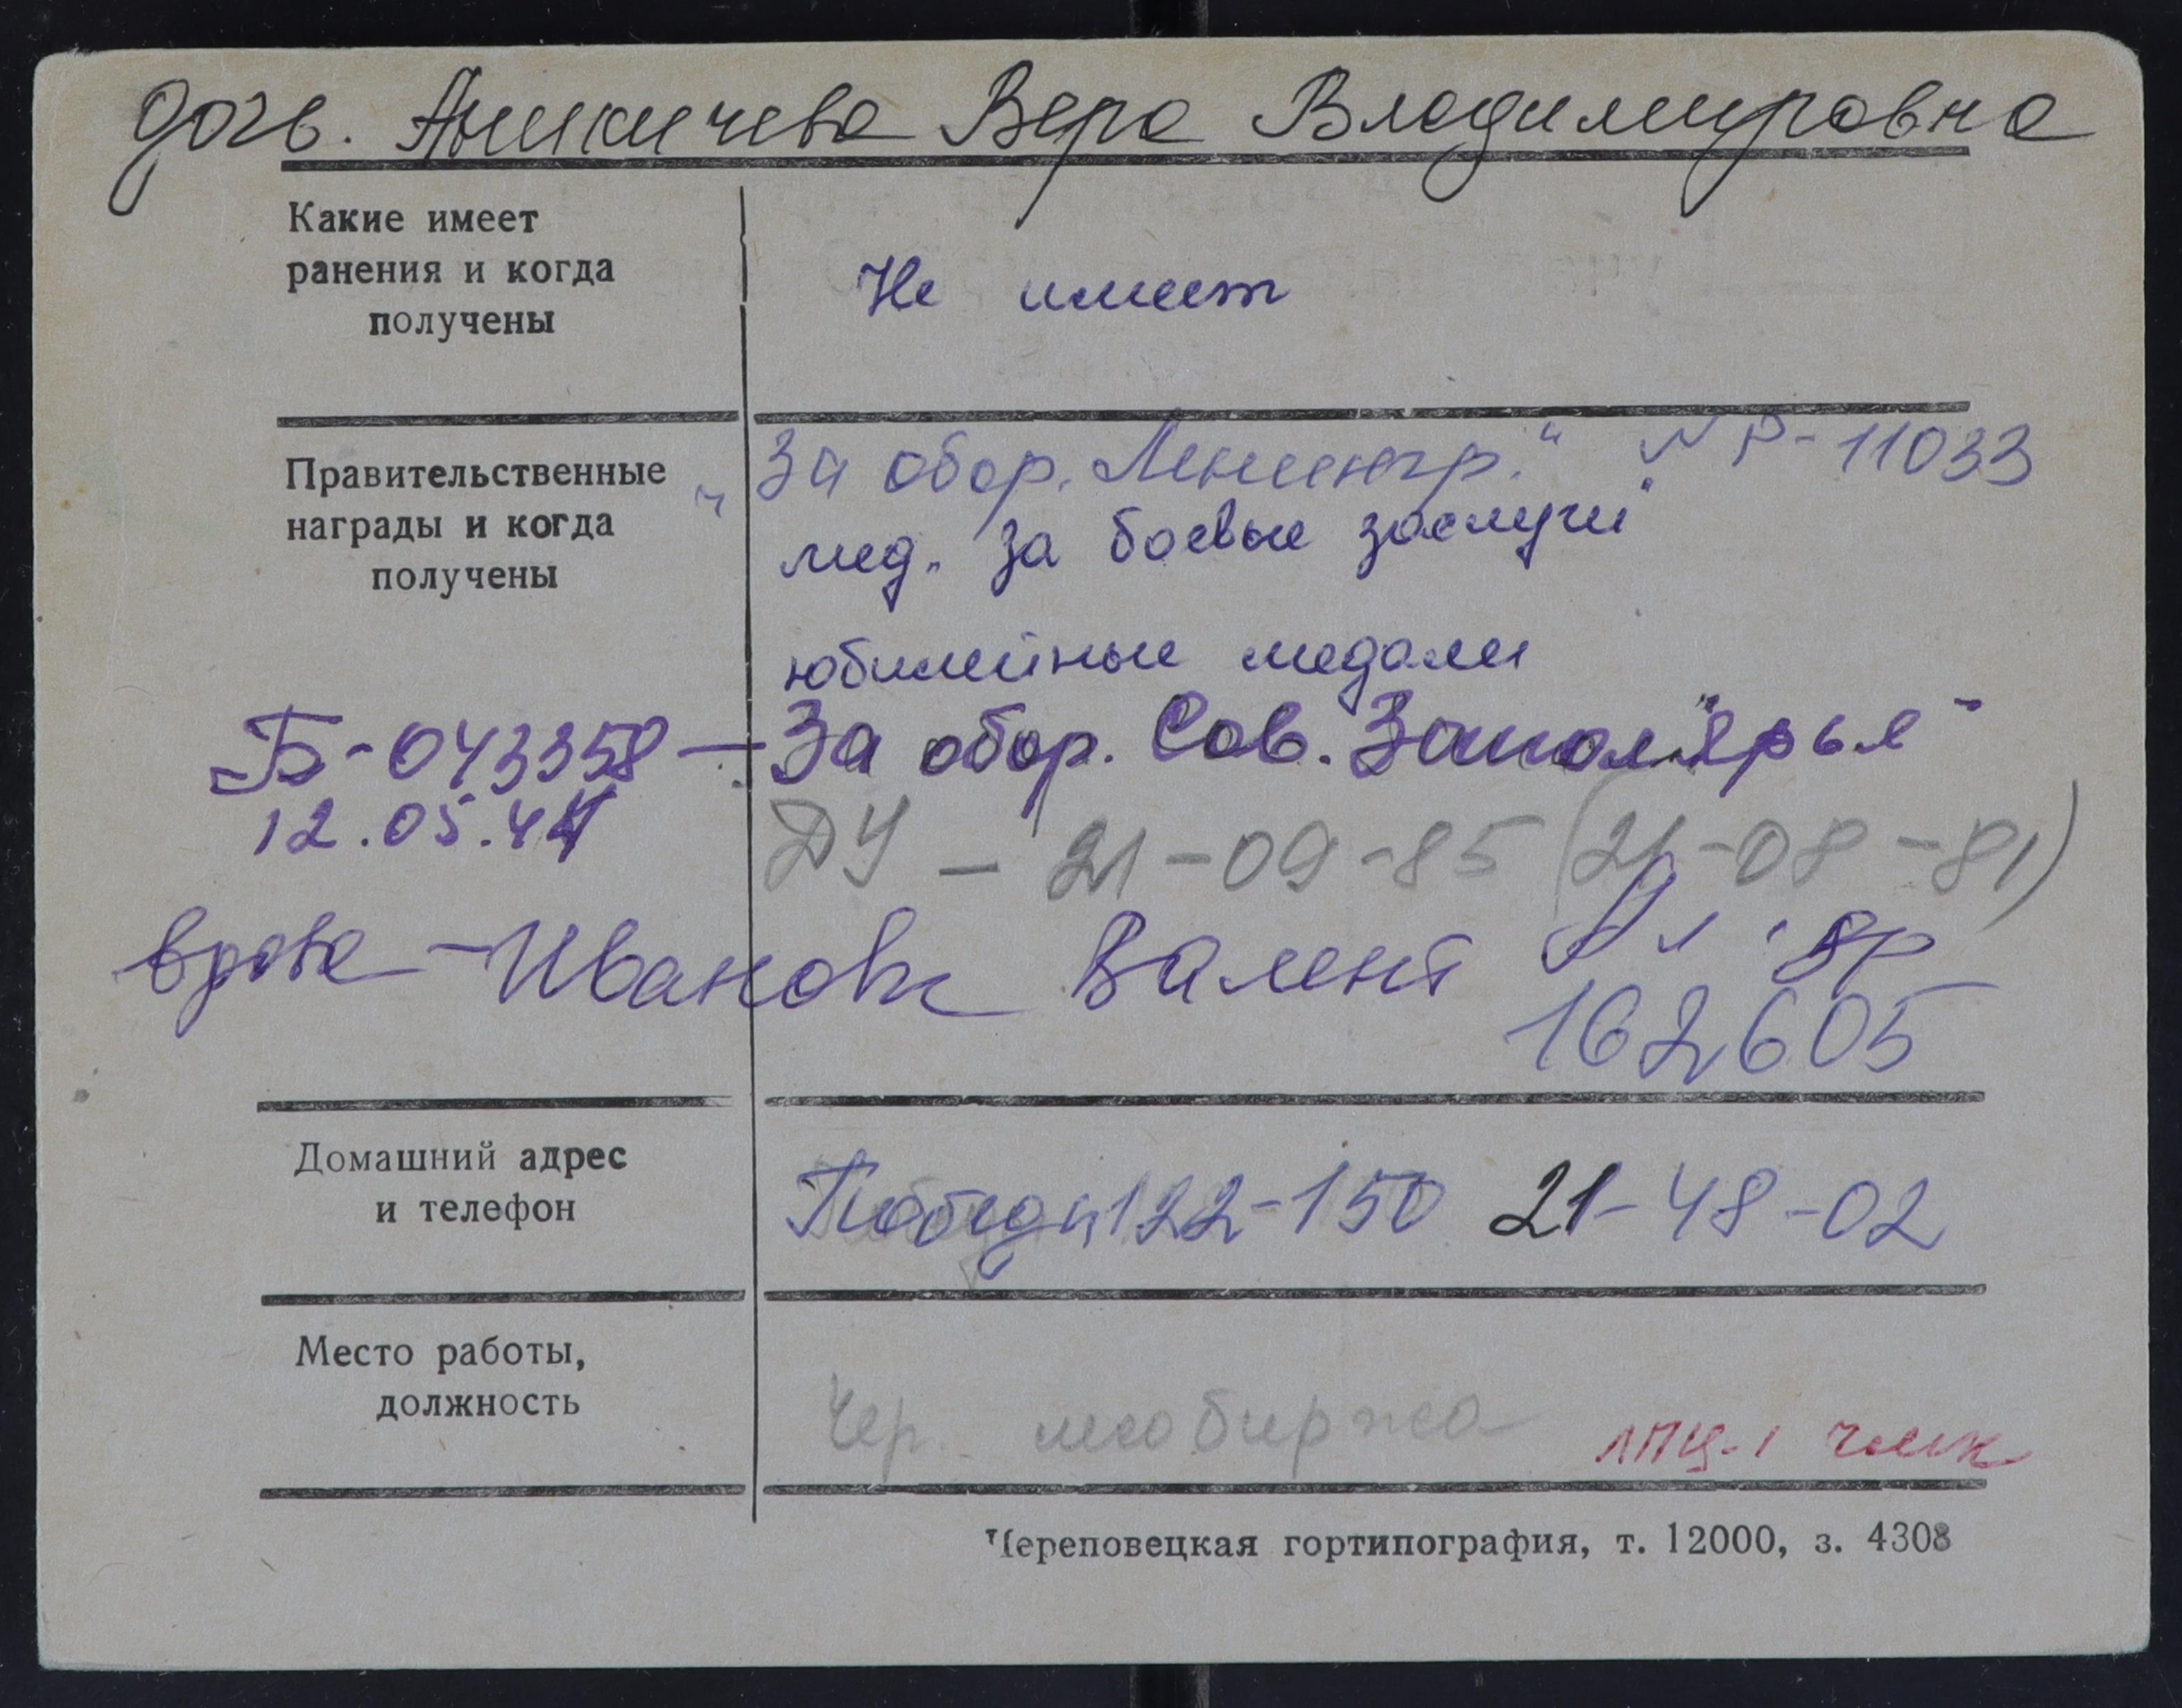 дочь. Аникичева Вера Владимировна
Какие имеет
ранения и когда
получены
Не имеет
Правительственные
награды и когда
получены
"За обор. Ленингр." № Р-11033
мед. "За боевые заслуги"
юбилейные медали
Б-043358 — За обор. Сов. Заполярья"
12.05.44
ДУ - 21-09-85 (21-08-81)
Иванова Валент
162605
Домашний адрес
и телефон
Победы 122-150 21-48-02
Место работы,
должность
Чер. лесобиржа ЛПЦ-1 ЧМК
Череповецкая гортипография, т. 12000, з. 4308